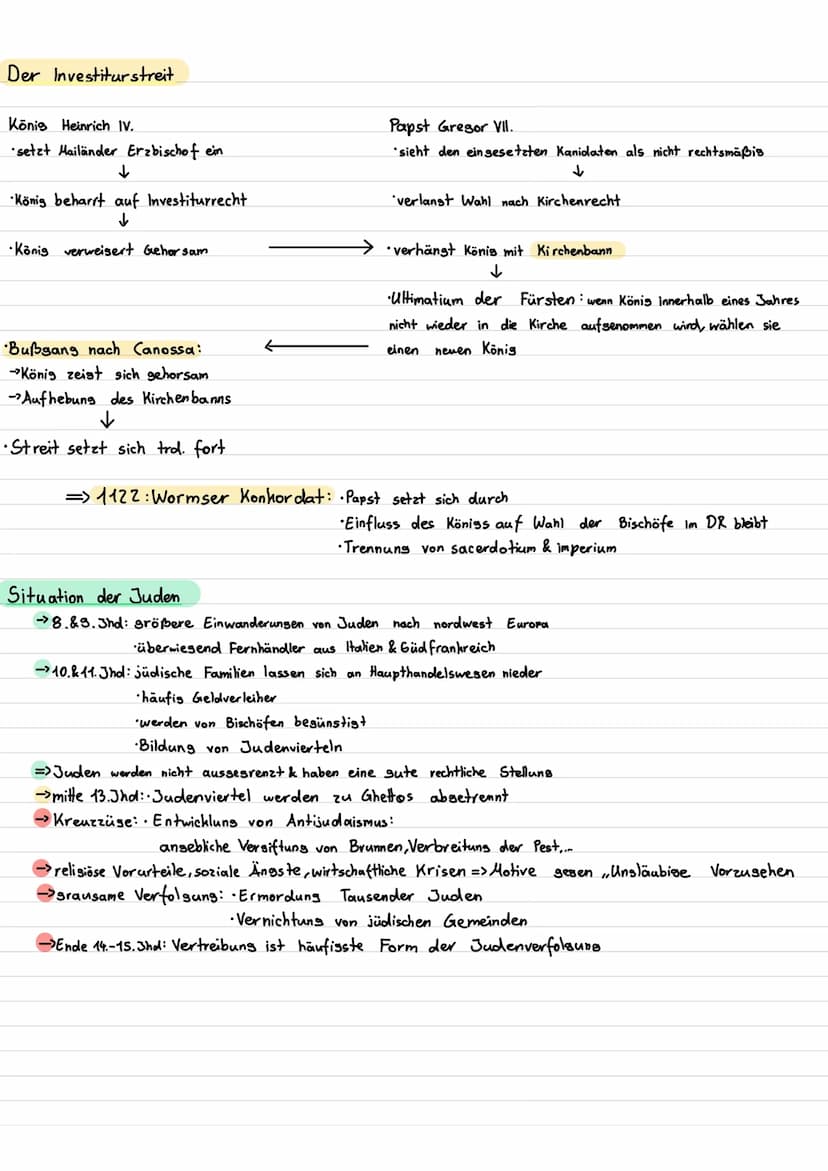 Der Investiturstreit
König Heinrich IV.
·setzt Mailänder Erzbischof ein
↓
·König beharrt auf Investiturrecht
↓
·König verweigert Gehorsam →
Papst Gregor VII.
·sieht den eingesetzten Kanidaten als nicht rechtsmäßig
↓
·verlangt Wahl nach Kirchenrecht
·verhängt König mit Kirchenbann
↓
·Ultimatium der Fürsten: wenn König innerhalb eines Jahres
nicht wieder in die Kirche aufgenommen wird, wählen sie
einen neuen König
←
·Bußgang nach Canossa:
→König zeigt sich gehorsam
→Aufhebung des Kirchenbanns
↓
·Streit setzt sich trd. fort
=> 1122: Wormser Konkordat: ·Papst setzt sich durch
·Einfluss des Königs auf Wahl der Bischöfe im DR bleibt
·Trennung von sacerdotium & imperium
Situation der Juden
→8.&9. Jhd: größere Einwanderungen von Juden nach nordwest Europa
·überwiegend Fernhändler aus Italien & Südfrankreich
→10.&11. Jhd: jüdische Familien lassen sich an Haupthandelswegen nieder
·häufig Geldverleiher
·werden von Bischöfen begünstigt
·Bildung von Judenvierteln
=>Juden werden nicht ausgegrenzt & haben eine gute rechtliche Stellung
→mitte 13. Jhd: ·Judenviertel werden zu Ghettos abgetrennt
→Kreuzzüge: ·Entwicklung von Antijudaismus:
angebliche Vergiftung von Brunnen, Verbreitung der Pest,...
→religiöse Vorurteile, soziale Ängste, wirtschaftliche Krisen => Motive gegen „Ungläubige Vorzugehen
→grausame Verfolgung: ·Ermordung Tausender Juden
·Vernichtung von jüdischen Gemeinden
→Ende 14.-15. Jhd: Vertreibung ist häufigste Form der Judenverfolgung